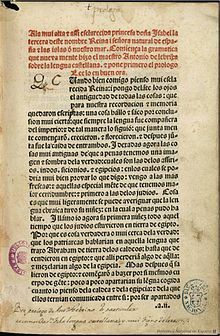 A la mui alta τ assi esclarecida princesa doña Isabel
la tercera deste nombre Reina i señora natural de espa-
ña τ las islas de nuestro mar. Comiença la gramatica
que nueva mente hizo el maestro Antonio de lebrixa
sobre la lengua castellana. τ pone primero el prologo.
Lee lo en buen ora.
C Uando bien comigo pienso mui escla
recida Reina: i pongo delante los ojos
el antiguedad de todas las cosas: que
para nuestra recordacion τ memoria
quedaron escriptas: una cosa hallo τ saco por conclu
sion mui cierta: que siempre la lengua fue compañera
del imperio: τ de tal manera lo siguio: que junta men
te començaron. crecieron. τ florecieron. τ despues jun
ta fue la caida de entrambos. I dexadas agora las co
sas mui antiguas de que a penas tenemos una ima-
gen τ sombra dela verdad: cuales son las delos assiri
os. indos. sicionios. τ egipcios: enlos cuales se po-
dria mui bien provar lo que digo: vengo a las mas
frescas: τ aquellas especial mente de que tenemos ma
ior certidumbre: τ primero a las delos judios. Cosa es
que mui ligera mente se puede averiguar que la len-
gua ebraica tuvo su niñez: en la cual a penas pudo ha
blar. I llamo io agora su primera niñez todo aquel ti-
empo que los judios estuvieron en tierra de egipto.
Por que es cosa verdadera o mui cerca dela verdad:
que los patriarcas hablarian en aquella lengua que
traxo Abraham de tierra delos caldeos: hasta que de
cendieron en egipto: τ que alli perderian algo de aque
lla: τ mezclarian algo dela egipcia. Mas despues que
salieron de egipto: τ començaron a hazer por si mes-
mos cuerpo de gente: poco a poco apartarian su len
gua cogida cuanto io pienso dela caldea τ dela egip-
cia: τ dela que ellos ternian comunicada entre
a.ii.